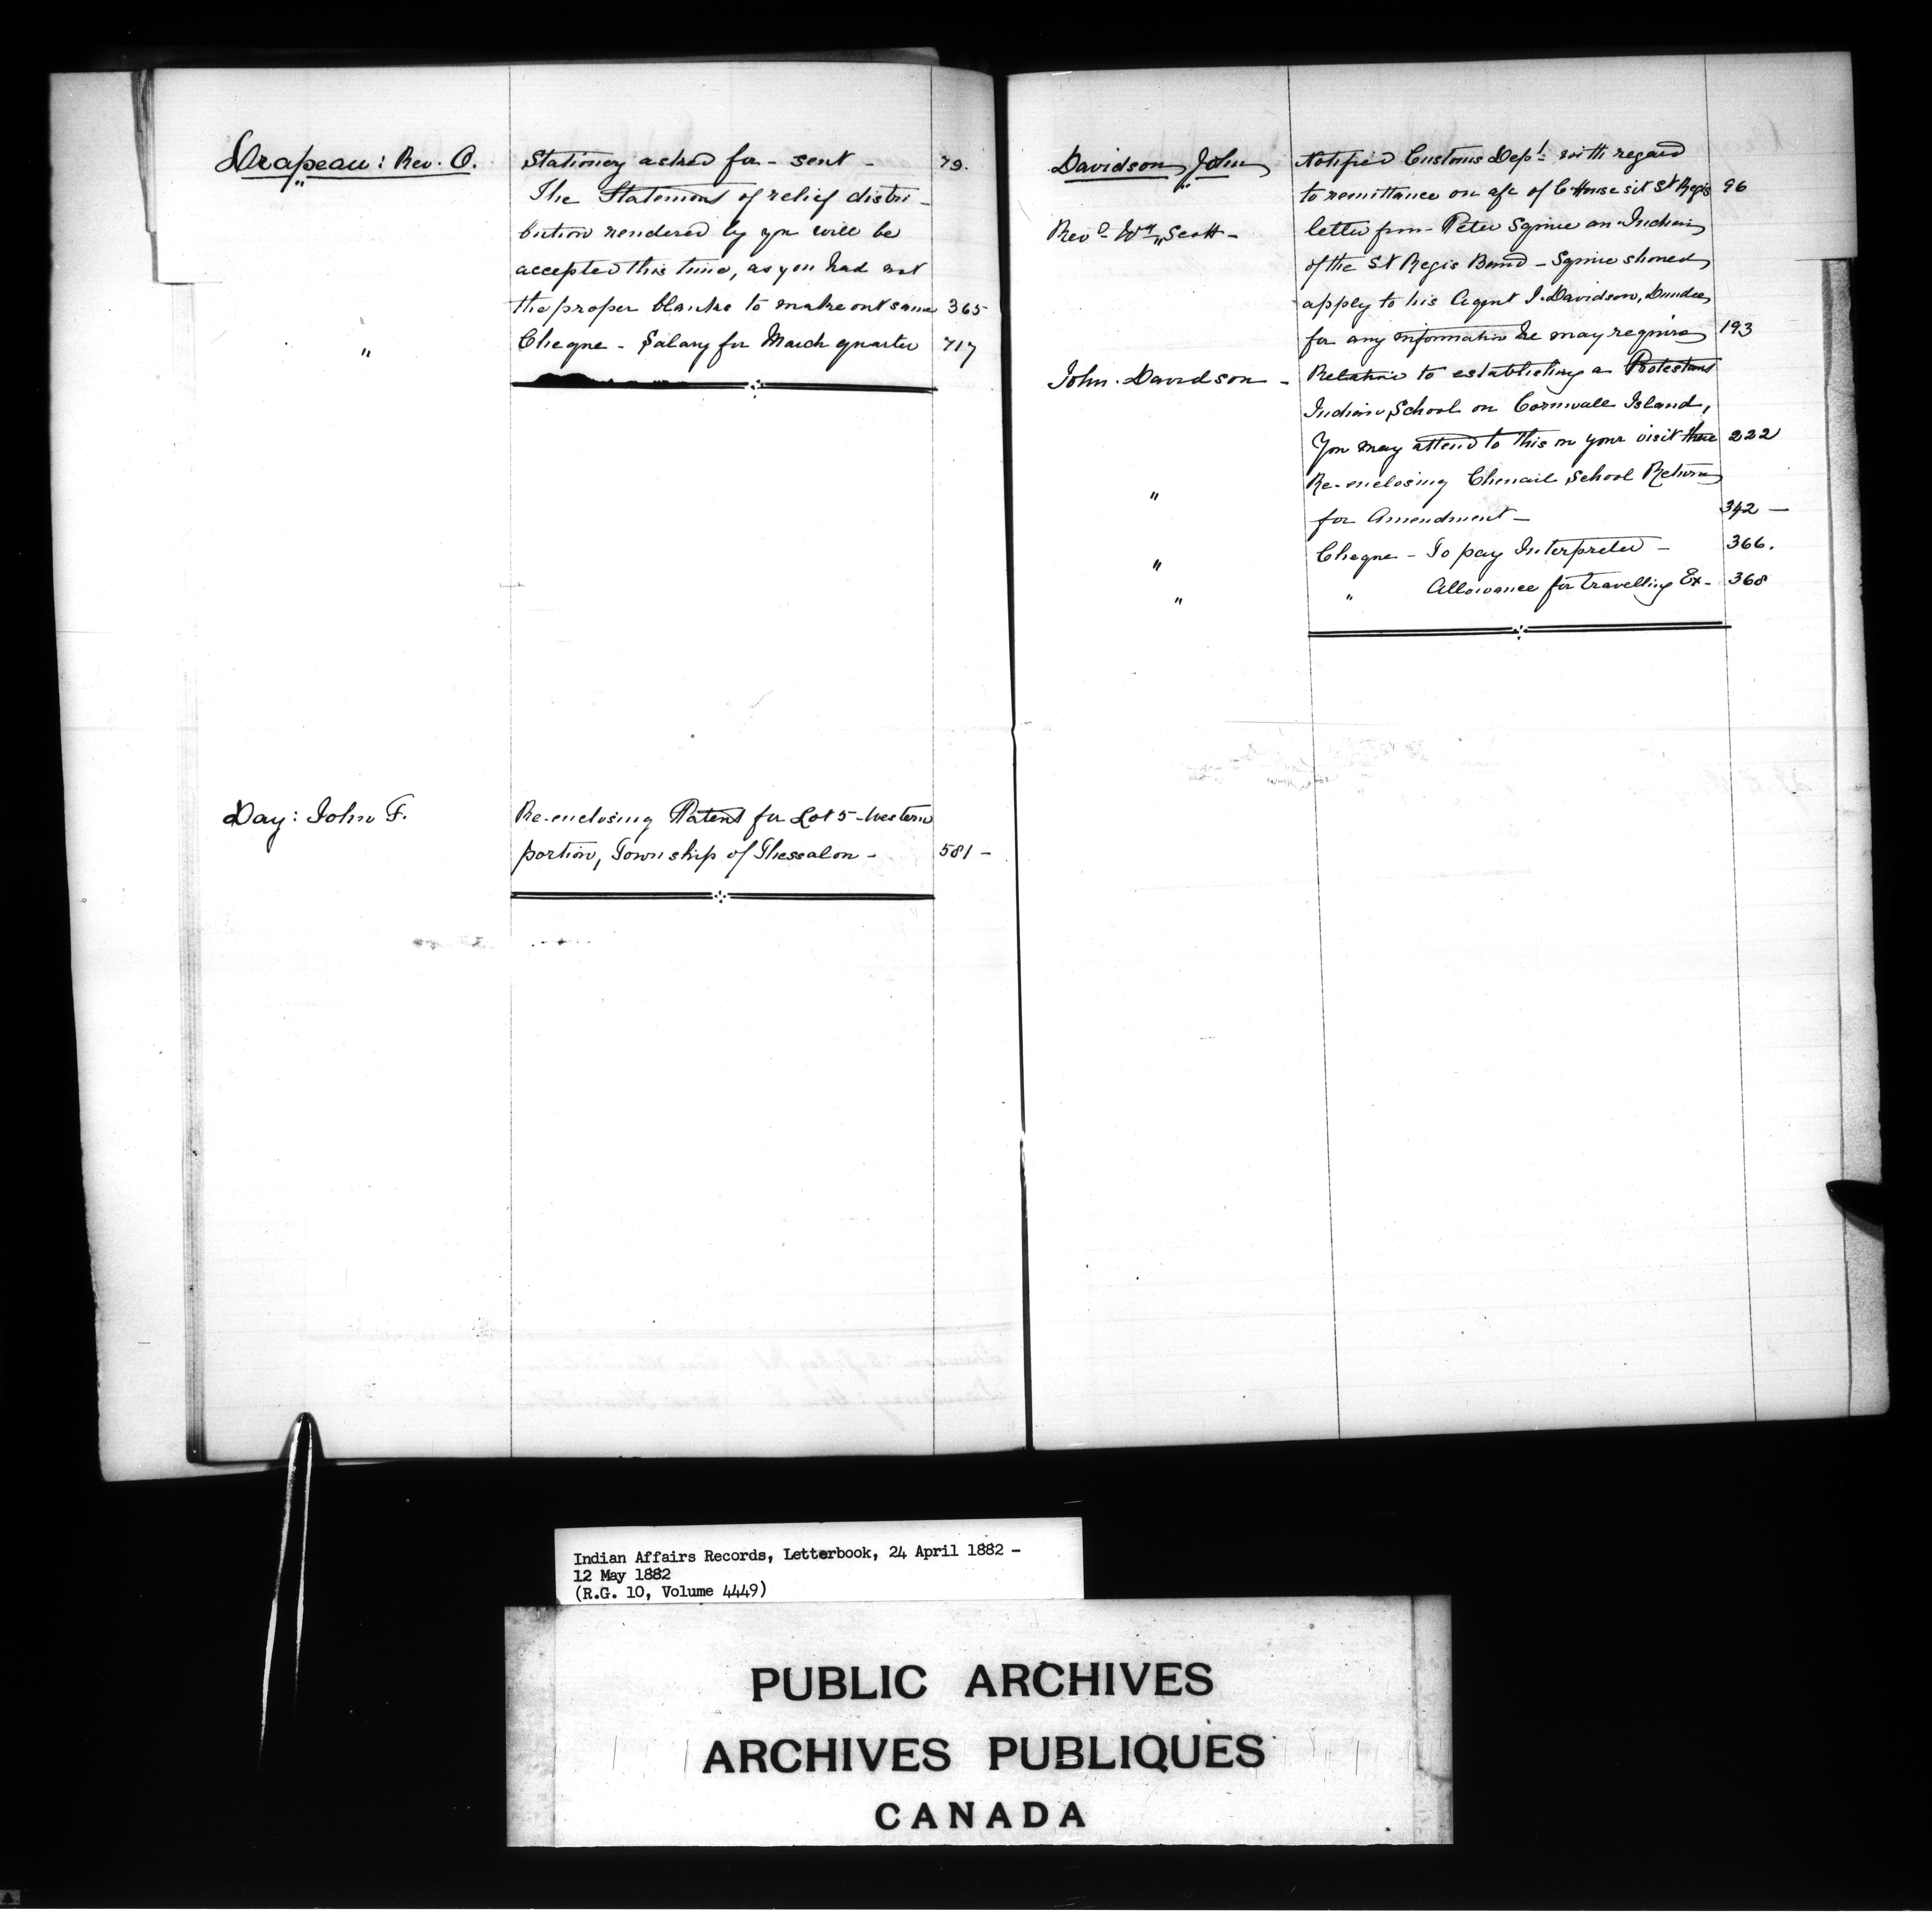 Drapeau: Rev. O. Stationery asked for - sent - 79.
" The Statement of relief distri-
bution rendered by you will be
accepted this time, as you had not
the proper blanks to make out same 365
" Cheque - Salary for March quarter 717
Day: John F. Re-enclosing Patent for Lot 5 - Western
portion, Township of Thessalon - 581 -
Davidson, John Notified Customs Dept. with regard
" to remittance on a/c of C House sit St Regis 96
Revd Wm Scott - letter from Peter Squire an Indian
" of the St Regis Band - Squire should
apply to his Agent J. Davidson, Dundee,
for any information he may require 193
John. Davidson - Relative to establishing a Protestant
Indian School on Cornwall Island,
You may attend to this on your visit there 222
" Re-enclosing Chenail School Return
for Amendment - 342 -
" Cheque - To pay Interpreter - 366.
" " Allowance for travelling Ex - 368
Indian Affairs Records, Letterbook, 24 April 1882 -
12 May 1882
(R.G. 10, Volume 4449)
PUBLIC ARCHIVES
ARCHIVES PUBLIQUES
CANADA